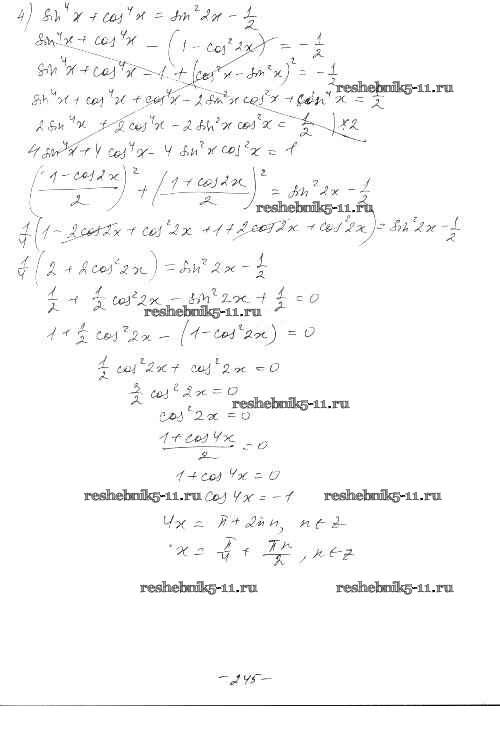 4) sin⁴x + cos⁴x = sin²2x - 1/2
sin⁴x + cos⁴x - (1 - cos²2x) = -1/2
sin⁴x + cos⁴x - 1 + (cos²x - sin²x)² = -1/2
reshebnik5-11.ru
sin⁴x + cos⁴x + cos⁴x - 2sin²x cos²x + sin⁴x = 1/2
2sin⁴x + 2cos⁴x - 2sin²x cos²x = 1/2 )×2
4sin⁴x + 4cos⁴x - 4sin²x cos²x = 1
((1-cos2x)/2)² + ((1+cos2x)/2)² = sin²2x - 1/2
reshebnik5-11.ru
1/4(1 - 2cos2x + cos²2x + 1 + 2cos2x + cos²2x) = sin²2x - 1/2
1/4(2 + 2cos²2x) = sin²2x - 1/2
1/2 + 1/2 cos²2x - sin²2x + 1/2 = 0
reshebnik5-11.ru
1 + 1/2 cos²2x - (1 - cos²2x) = 0
1/2 cos²2x + cos²2x = 0
3/2 cos²2x = 0
reshebnik5-11.ru
cos²2x = 0
(1+cos4x)/2 = 0
1 + cos4x = 0
reshebnik5-11.ru cos4x = -1 reshebnik5-11.ru
4x = π + 2πn, n∈z
x = π/4 + πn/2, n∈z
reshebnik5-11.ru reshebnik5-11.ru
-245-